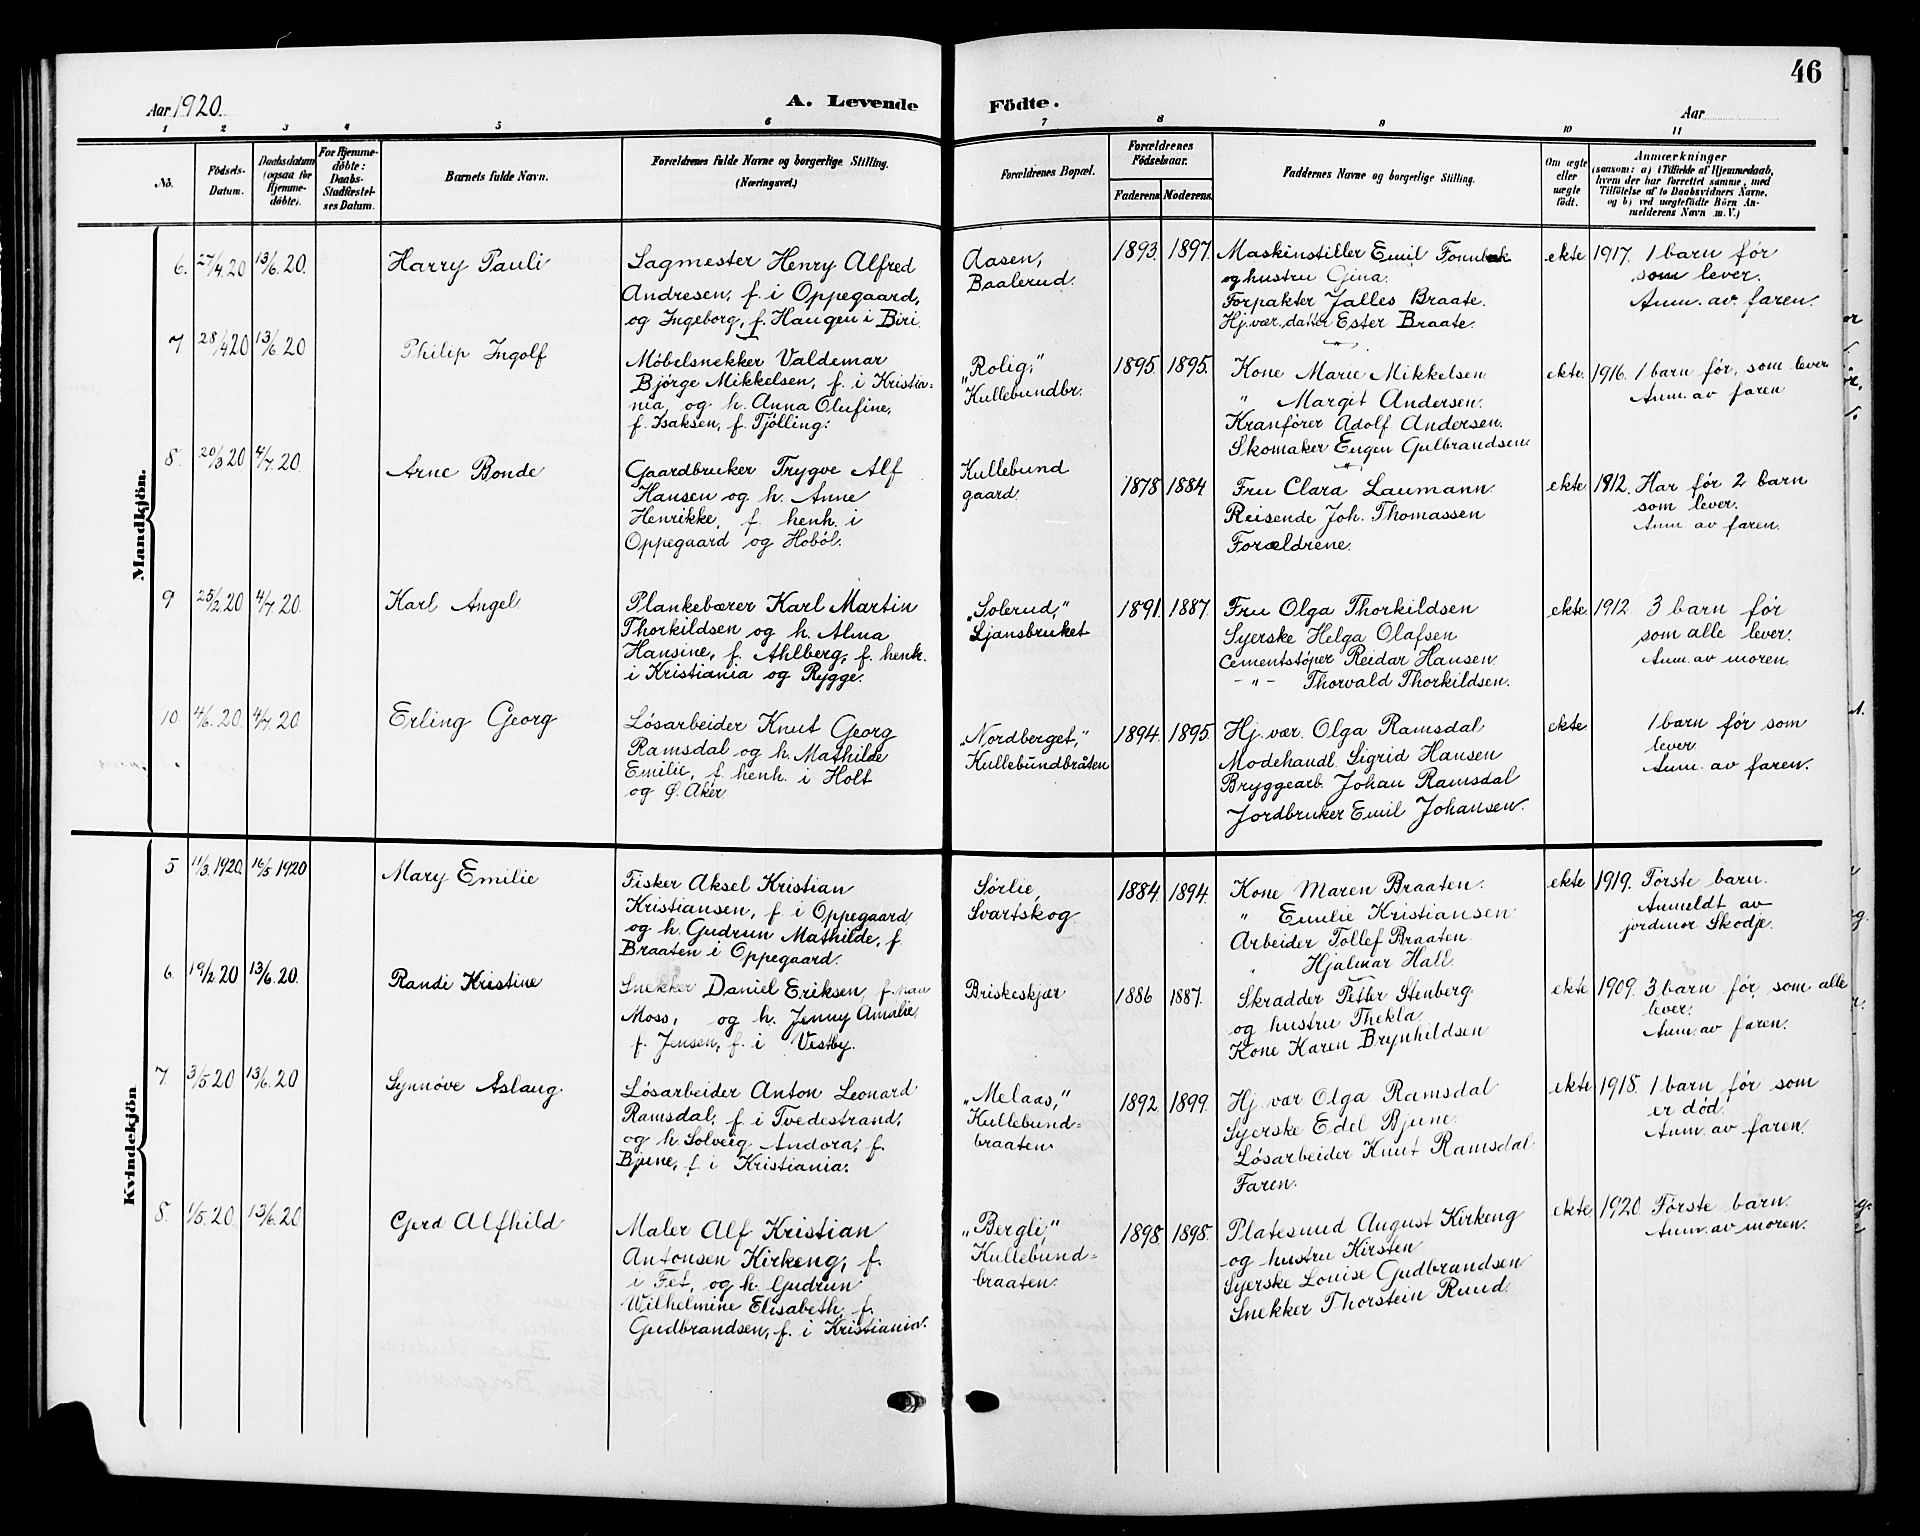 46
Aar 1920. A. Levende Fødte. Aar
1 2 3 4 5 6 7 8 9 10 11
No. Fødsels-Datum. Daabsdatum (ogsaa for Hjemme-døbte). For Hjemme-døbte: Daabs-Stadfæstel-ses Datum. Barnets fulde Navn. Forældrenes fulde Navne og borgerlige Stilling. (Næringsvei.) Forældrenes Bopæl. Forældrenes Fødselsaar. Faderens Moderens. Faddernes Navne og borgerlige Stilling. Om ægte eller uægte født. Anmærkninger (saasom: a) Tilfælde af Hjemmedaab, hvem der har forrettet samme, med Tilføielse af to Daabsvidners Navne, og b) ved uægtefødte Børn An-melderens Navn m. V.)
Mandkjøn.
6. 27/4.20 13/6.20. Harry Pauli Sagmester Henry Alfred Aasen, 1893. 1897. Maskinstiller Emil Fonnbæk ekte 1917. 1 barn før
Andresen, f. i Oppegaard, Baalerud. og hustru Gina. som lever.
og Ingeborg, f. Haugen i Biri. Forpakter Jalles Braate. Anm. av faren.
Hj. vær. datter Ester Braate.
7 28/4 20 13/6.20 Philip Ingolf Møbelsnekker Valdemar "Rolig," 1895. 1895. Kone Marie Mikkelsen. ekte. 1916. 1 barn før, som lever
Bjørge Mikkelsen, f. i Kristia- Kullebundbr. " Margit Andersen. Anm. av faren
nia, og h. Anna Olufine, Kranfører Adolf Andersen.
f. Isaksen, f. Tjølling. Skomaker Eugen Gulbrandsen
8. 20/3 20 4/7.20. Arne Bonde Gaardbruker Trygve Alf Kullebund 1878 1884 Fru Clara Laumann. ekte. 1912. Har før 2 barn
Hansen og h. Anne gaard. Reisende Joh. Thomassen som lever.
Henrikke, f. henh. i Forældrene. Anm av faren.
Oppegaard og Hobøl.
9 25/2.20 4/7.20. Karl Angel Plankebærer Karl Martin "Solerud," 1891. 1887. Fru Olga Thorkildsen ekte 1912 3 barn før
Thorkildsen og h. Alma Ljansbruket Syerske Helga Olafsen som alle lever.
Hansine, f. Ahlberg, f. henh. Cementstøper Reidar Hansen. Anm. av moren.
i Kristiania og Rygge. - " - Thorvald Thorkildsen.
10. 4/6.20. 4/7.20 Erling Georg Løsarbeider Knut Georg "Nordberget," 1894. 1895. Hj. vær. Olga Ramsdal ekte. 1 barn før som
Ramsdal og h. Mathilde Kullebundbråten Modehandl. Sigrid Hansen lever.
Emilie, f. henh. i Holt Bryggearb. Johan Ramsdal Anm. av faren.
og Ø. Aker. Jordbruker Emil Johansen.
Kvindekjøn
5 11/3.1920. 16/5 1920 Mary Emilie Fisker Aksel Kristian Sørlie, 1884. 1894. Kone Maren Braaten. ekte 1919. Første barn.
Kristiansen, f. i Oppegaard Svartskog. " Emilie Kristiansen. Anmeldt av
og h. Gudrun Mathilde, f. Arbeider Tollef Braaten. jordmor Skodje.
Braaten i Oppegaard. " Hjalmar Hall.
6. 19/2.20 13/6.20. Randi Kristine Snekker Daniel Eriksen, f. Briskeskjær 1886 1887. Skradder Petter Stenberg ekte 1909. 3 barn før, som alle
Moss, og h. Jenny Amalie, og hustru Thekla. lever.
f. Jensen, f. i Vestby. Kone Karen Brynhildsen Anm. av faren.
7. 3/5.20 13/6.20 Synnøve Aslaug Løsarbeider Anton Leonard "Melaas," 1892. 1899. Hj. vær Olga Ramsdal ekte 1918. 1 barn før som
Ramsdal, f. i Tvedestrand, Kullebund- Syerske Edel Bjune. er død.
og h. Solveig Andora, f. braaten. Løsarbeider Knut Ramsdal Anm. av faren.
Bjune, f. i Kristiania. Faren.
8. 1/5.20 13/6.20 Gerd Alfhild Maler Alf Kristian "Bergli," 1898 1898. Platesmed August Kirkeng ekte 1920. Første barn.
Antonsen Kirkeng, f. Kullebund- og hustru Kirsten Anm. av moren.
i Fet, og h. Gudrun braaten. Syerske Louise Gudbrandsen
Wilhelmine Elisabeth, f. Snekker Thorstein Ruud.
Gudbrandsen, f. i Kristiania.